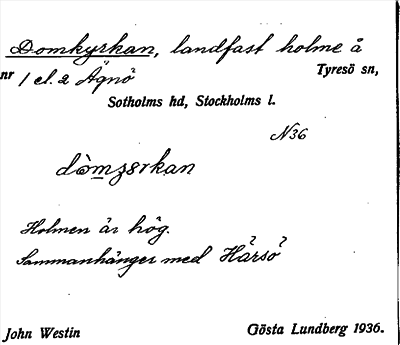 Domkyrkan, landfast holme å
nr 1 el. 2 Ägnö Tyresö sn,
Sotholms hd, Stockholms l.
N36
dòmʒɛrkan
Holmen är hög.
Sammanhänger med Härsö?
John Westin Gösta Lundberg 1936.